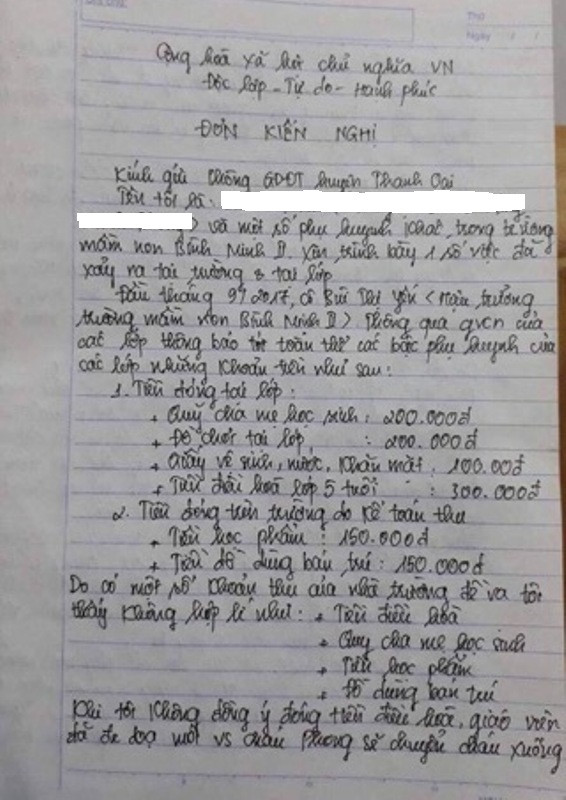 Thứ
Ngày / /
Cộng hoà xã hội chủ nghĩa VN
Độc lập - Tự do - Hạnh phúc
ĐƠN KIẾN NGHỊ
Kính gửi Phòng GDĐT huyện Thanh Oai
Tên tôi là:
và một số phụ huynh khác trong trường
mầm non Bình Minh II. Xin trình bày 1 số việc đã
xảy ra tại trường & tại lớp
Đầu tháng 9/2017, cô Bùi Thị Yến < Hiệu trưởng
trường mầm non Bình Minh II > Thông qua gvcn của
các lớp thông báo tới toàn thể các bậc phụ huynh của
các lớp những khoản tiền như sau:
1. Tiền đóng tại lớp:
+ Quỹ cha mẹ học sinh: 200.000đ
+ Đồ chơi tại lớp : 200.000đ
+ Giấy vệ sinh, nước, khăn mặt: 100.00đ
+ Tiền điều hoà lớp 5 tuổi : 300.000đ
2. Tiền đóng trên trường do kế toán thu
+ Tiền học phẩm : 150.000đ
+ Tiền đồ dùng bán trú : 150.000đ
Do có một số khoản thu của nhà trường đề ra tôi
thấy không hợp lí như: + Tiền điều hoà
+ Quỹ cha mẹ học sinh
+ Tiền học phẩm
+ Đồ dùng bán trú
Khi tôi không đồng ý đóng tiền điều hoà, giáo viên
đã đe doạ mới vs cháu Phong sẽ chuyển cháu xuống